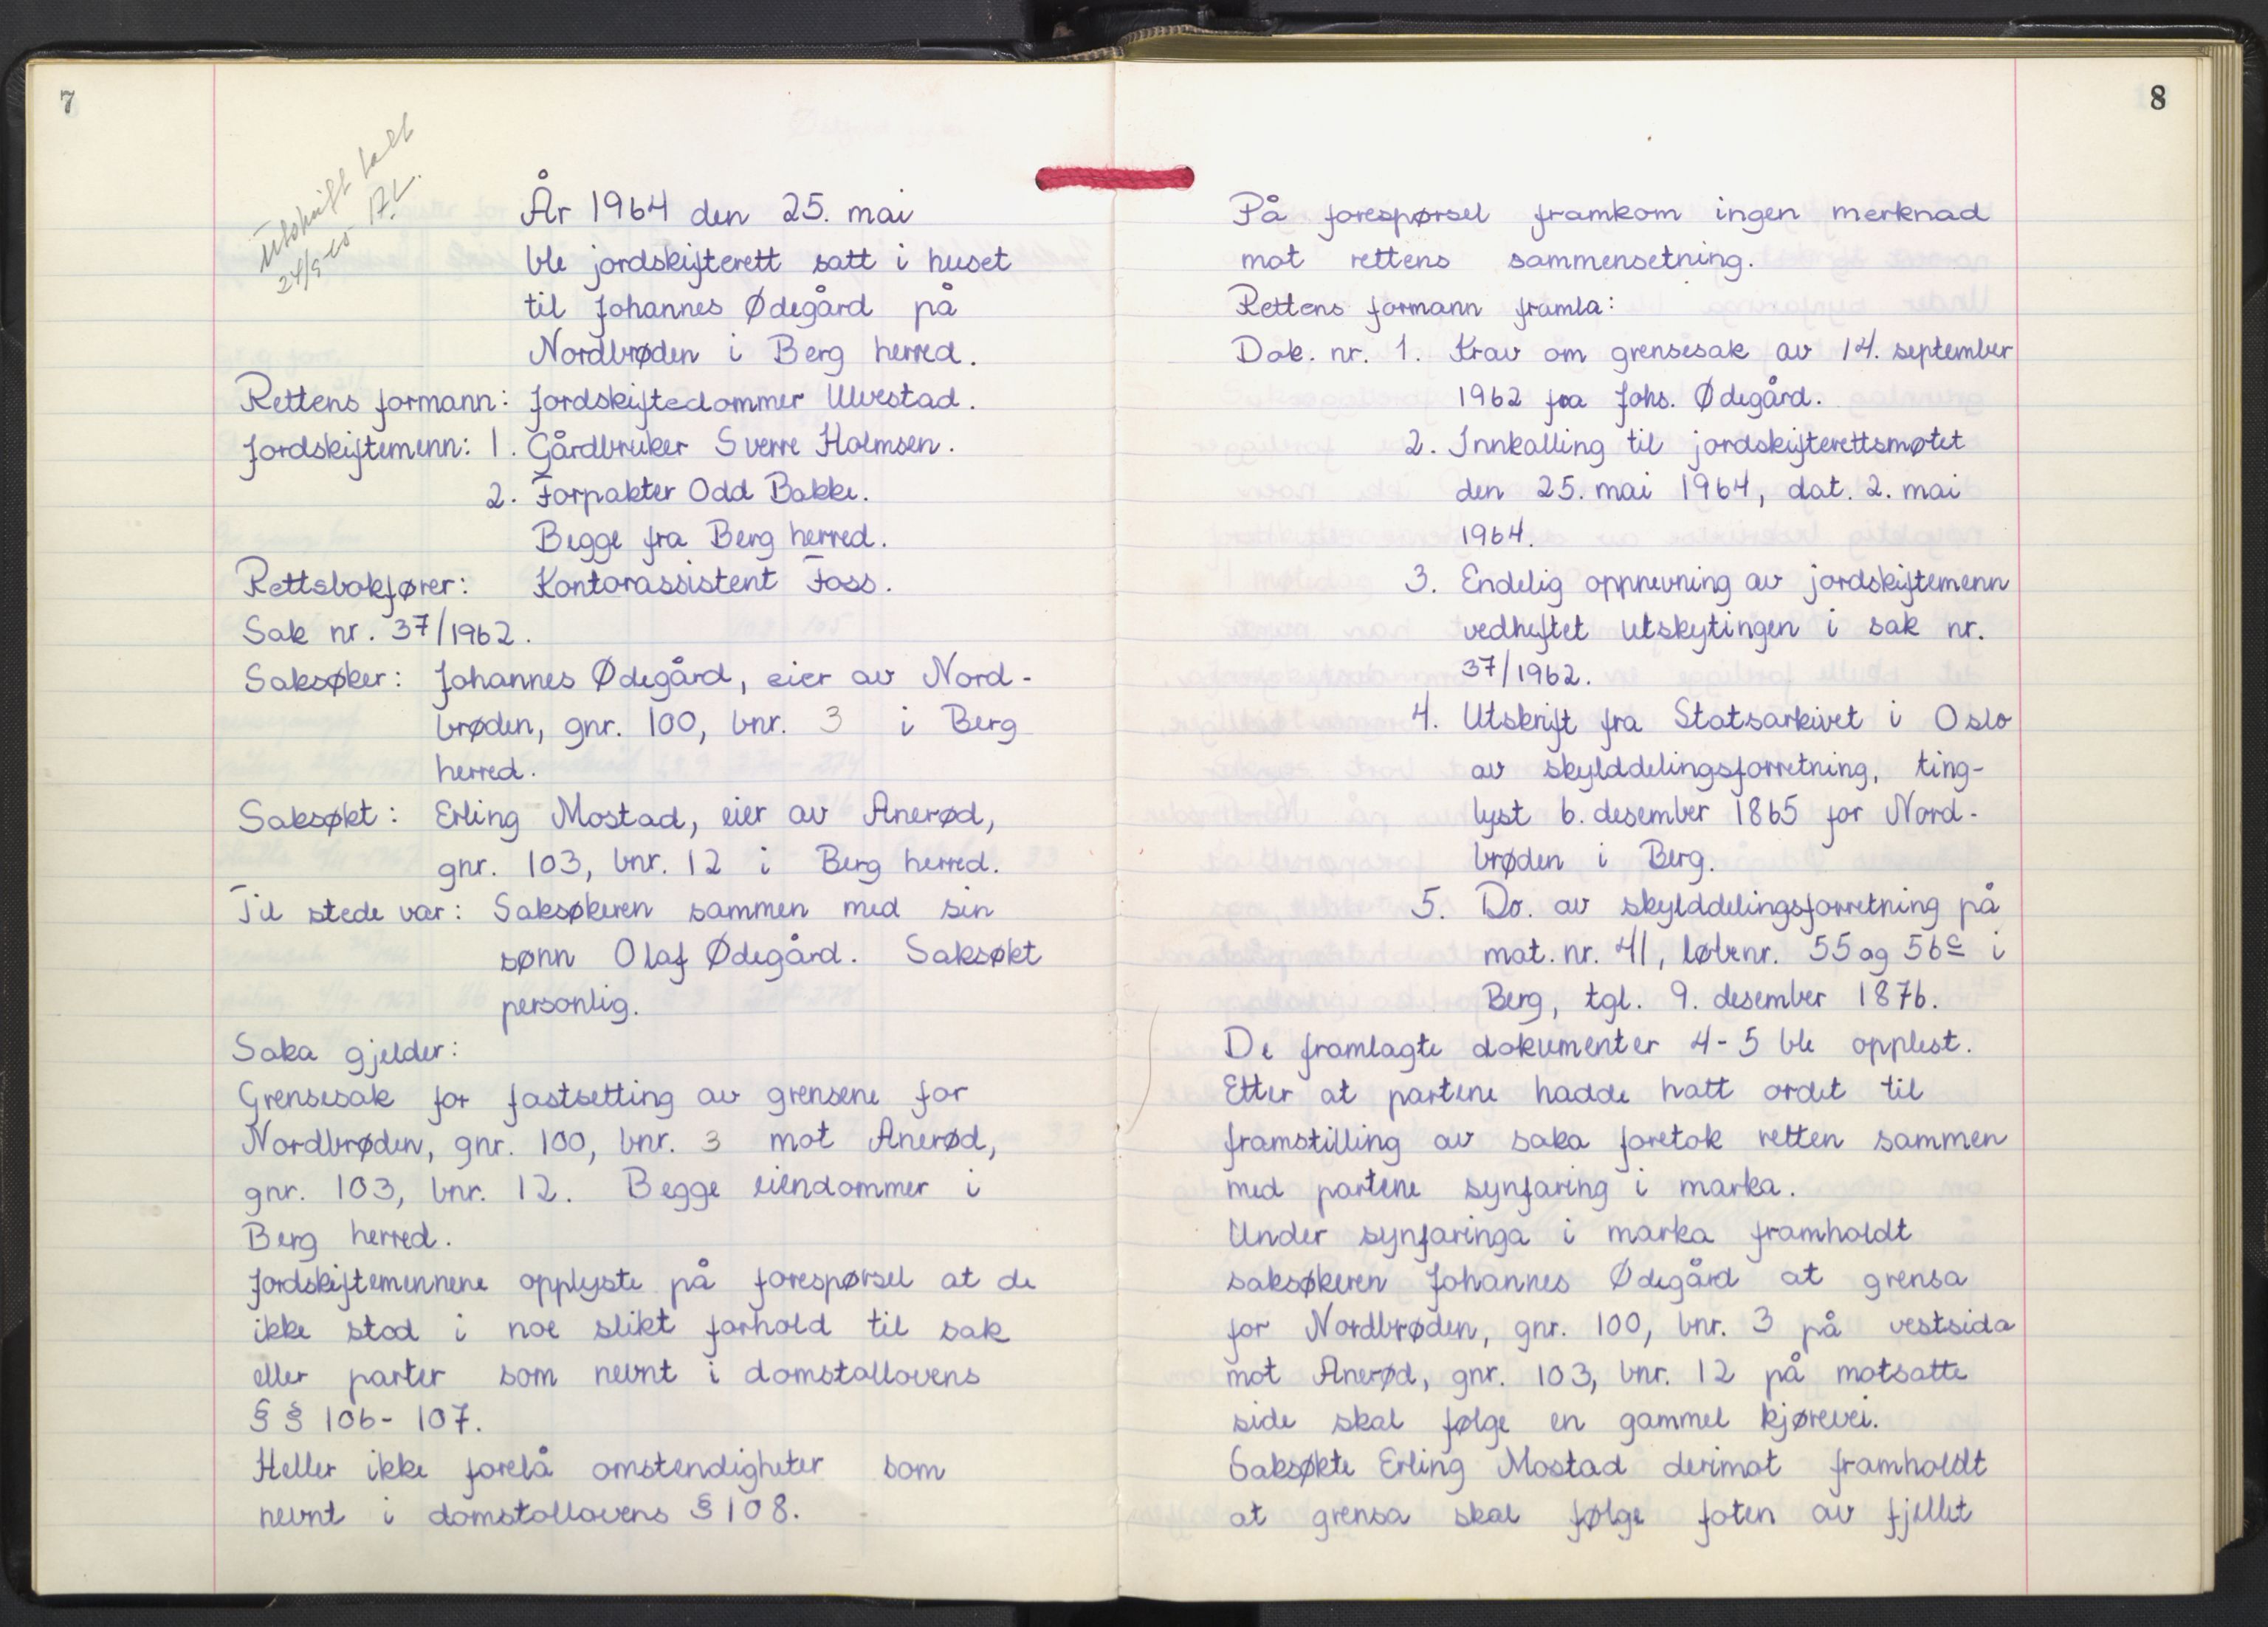 7
Utskrift tatt
24/9-65 A.L.
År 1964 den 25. mai
ble jordskifterett satt i huset
til Johannes Ødegård på
Nordbrøden i Berg herred.
Rettens formann: Jordskiftedommer Ulvestad.
Jordskiftemenn: 1. Gårdbruker Sverre Holmsen.
2. Forpakter Odd Bakke.
Begge fra Berg herred.
Rettsbokfører: Kontorassistent Foss.
Sak nr. 37/1962.
Saksøker: Johannes Ødegård, eier av Nord-
brøden, gnr. 100, bnr. 3 i Berg
herred.
Saksøkt: Erling Mostad, eier av Anerød,
gnr. 103, bnr. 12 i Berg herred.
Til stede var: Saksøkeren sammen med sin
sønn Olaf Ødegård. Saksøkt
personlig.
Saka gjelder:
Grensesak for fastsetting av grensene for
Nordbrøden, gnr. 100, bnr. 3 mot Anerød,
gnr. 103, bnr. 12. Begge eiendommer i
Berg herred.
Jordskiftemennene opplyste på forespørsel at de
ikke stod i noe slikt forhold til sak
eller parter som nevnt i domstollovens
§§ 106-107.
Heller ikke forelå omstendigheter som
nevnt i domstollovens § 108.
8
På forespørsel framkom ingen merknad
mot rettens sammensetning.
Rettens formann framla:
Dok. nr. 1. Krav om grensesak av 14. september
1962 fra Johs. Ødegård.
2. Innkalling til jordskifterettsmøtet
den 25. mai 1964, dat. 2. mai
1964.
3. Endelig oppnevning av jordskiftemenn
vedheftet utskytingen i sak nr.
37/1962.
4. Utskrift fra Statsarkivet i Oslo
av skylddelingsforretning, ting-
lyst 6. desember 1865 for Nord-
brøden i Berg.
5. Do. av skylddelingsforretning på
mat. nr. 41, løbenr. 55 og 56c i
Berg, tgl. 9. desember 1876.
De framlagte dokumenter 4-5 ble opplest.
Etter at partene hadde hatt ordet til
framstilling av saka foretok retten sammen
med partene synfaring i marka.
Under synfaringa i marka framholdt
saksøkeren Johannes Ødegård at grensa
for Nordbrøden, gnr. 100, bnr. 3 på vestsida
mot Anerød, gnr. 103, bnr. 12 på motsatte
side skal følge en gammel kjørevei.
Saksøkte Erling Mostad derimot framholdt
at grensa skal følge foten av fjellet